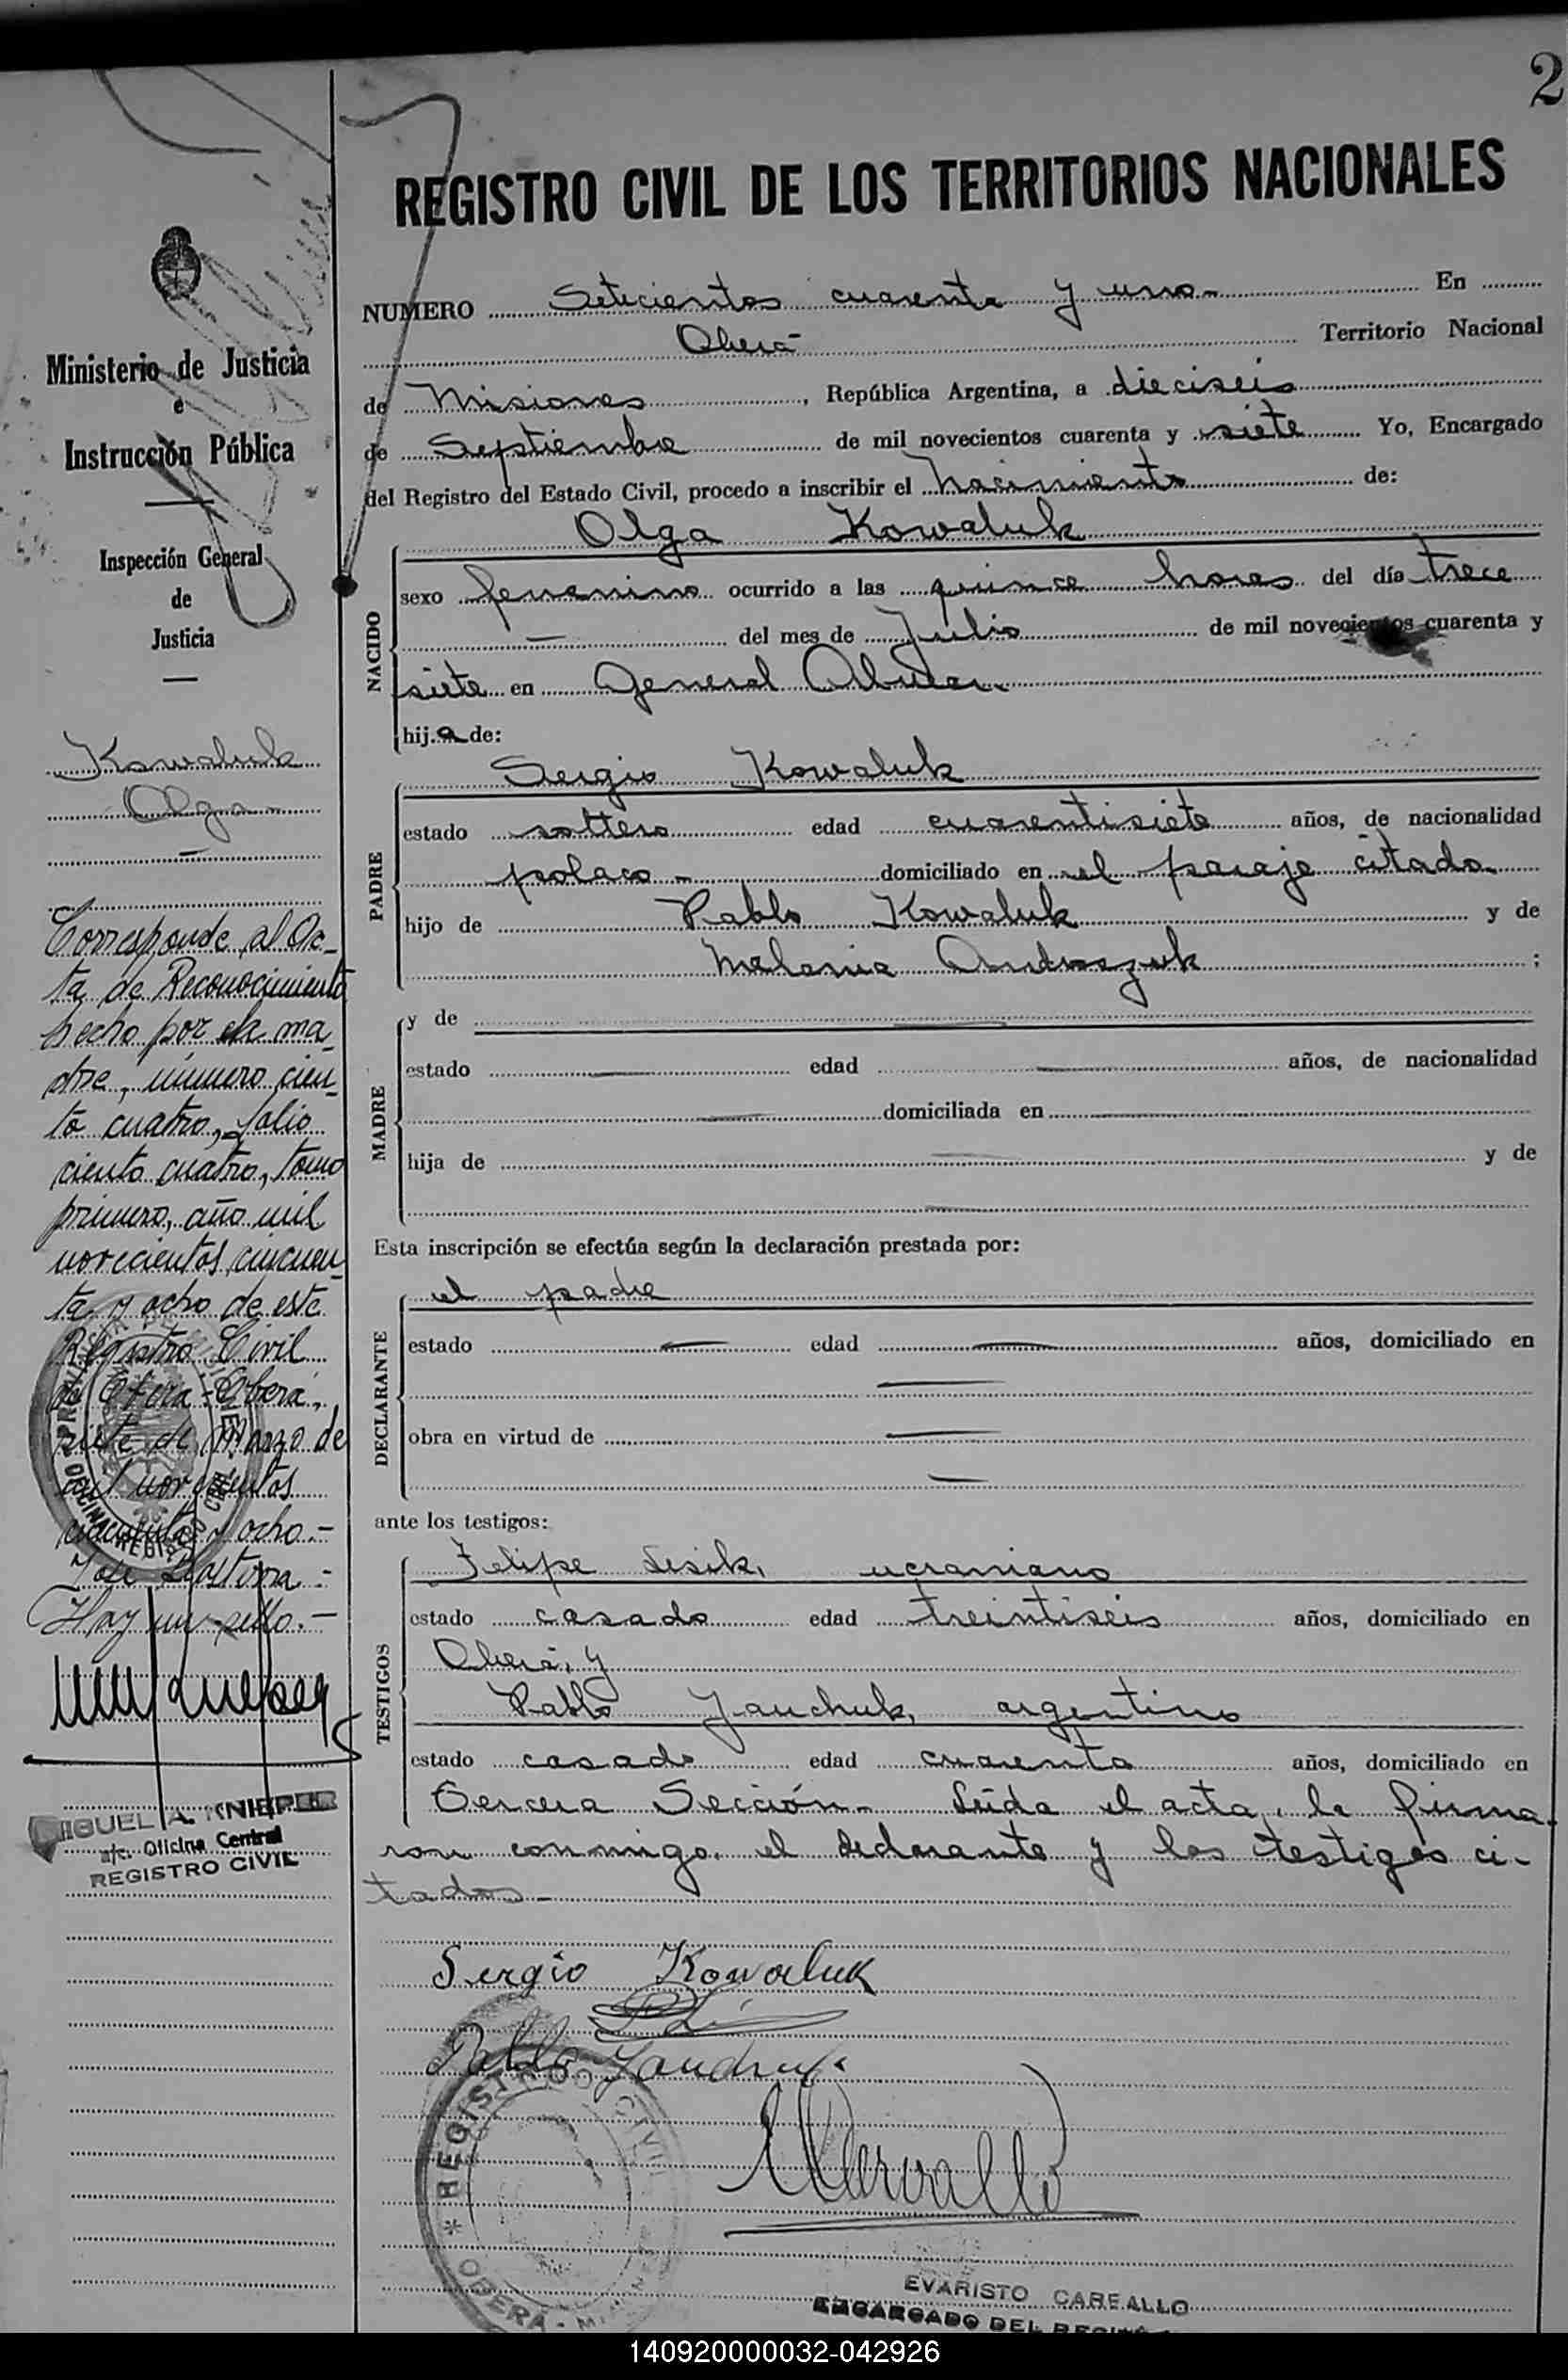 2
REGISTRO CIVIL DE LOS TERRITORIOS NACIONALES
Ministerio de Justicia
e
Instrucción Pública
Inspección General
de
Justicia
Kowaluk
Olga
Corresponde al Ac-
ta de Reconocimiento
hecho por la ma-
dre, número cien-
to cuatro, folio
ciento cuatro, tomo
primero, año mil
novecientos cincuen-
ta y ocho de este
Registro Civil
de Oberá,
siete de marzo de
mil novecientos
cincuenta y ocho.-
Hay un sello.-
MIGUEL A. KNIEPER
a/c. Oficina Central
REGISTRO CIVIL
NUMERO Setecientos cuarenta y uno- En
Oberá- Territorio Nacional
de Misiones, República Argentina, a dieciseis
de Septiembre de mil novecientos cuarenta y siete Yo, Encargado
del Registro del Estado Civil, procedo a inscribir el nacimiento de:
NACIDO
Olga Kowaluk
sexo femenino ocurrido a las quince horas del día trece
— del mes de Julio de mil novecientos cuarenta y
siete en General Alvear.
hija de:
PADRE
Sergio Kowaluk
estado soltero edad cuarentisiete años, de nacionalidad
polaco - domiciliado en el paraje citado
hijo de Pablo Kowaluk y de
Melania Andraszuk ;
MADRE
y de —
estado — edad — años, de nacionalidad
— domiciliada en —
hija de — y de
—
Esta inscripción se efectúa según la declaración prestada por:
DECLARANTE
el padre
estado — edad — años, domiciliado en
—
obra en virtud de —
—
ante los testigos:
TESTIGOS
Felipe Lesik, ucraniano
estado casado edad treintiseis años, domiciliado en
Oberá, y
Pablo Yauchuk, argentino
estado casado edad cuarenta años, domiciliado en
Tercera Sección- Leída el acta, la firma-
ron conmigo, el declarante y los testigos ci-
tados-
Sergio Kowaluk
Pablo Yauchuk
REGISTRO CIVIL
OBERÁ -
EVARISTO CARBALLO
ENCARGADO DEL
140920000032-042926